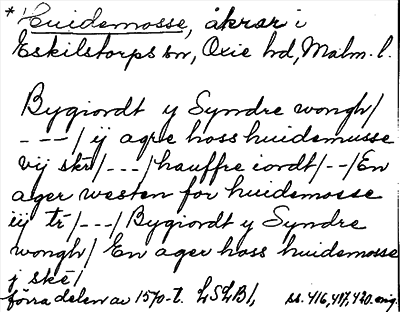 *Huidemosse, åkrar i
Eskilstorps sn, Oxie hd, Malm. l.
Bygiordt y Syndre wongh/
---/ ij agre hoss huidemusse
vij skr/---/hauffre iordt/--/En
ager westen for huidemosse
iij tr/---/Bygiordt y Syndre
wongh/ En ager hoss huidemosse
j ske/
förra delen av 1570-t. LSLB1, ss. 416, 417, 420. orig.